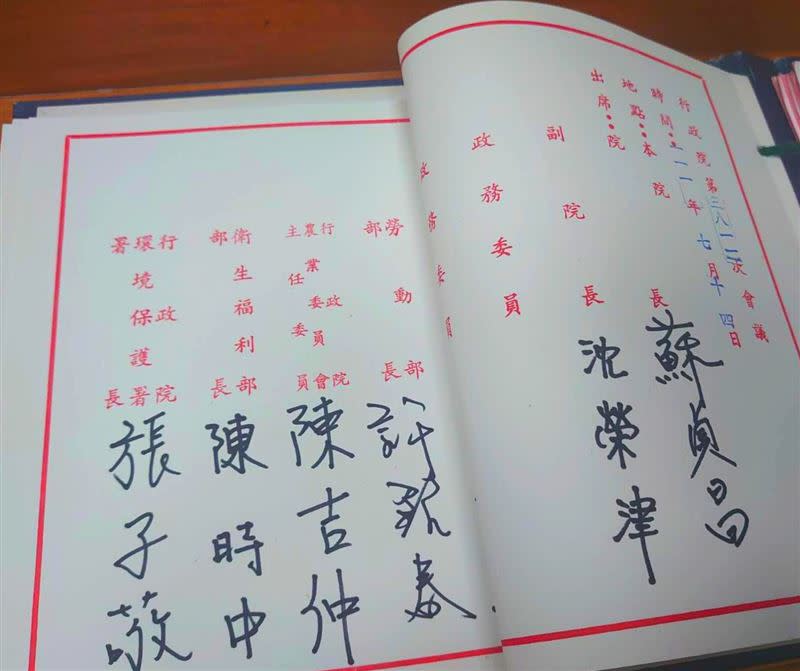 行政院第三八一一次會議
時間：一一一年七月十四日
地點：本院
出席：院長 蘇貞昌
副院長 沈榮津
政務委員
政務委員
勞動部部長 許銘春
行政院農業委員會主任委員 陳吉仲
衛生福利部部長 陳時中
行政院環境保護署署長 張子敬